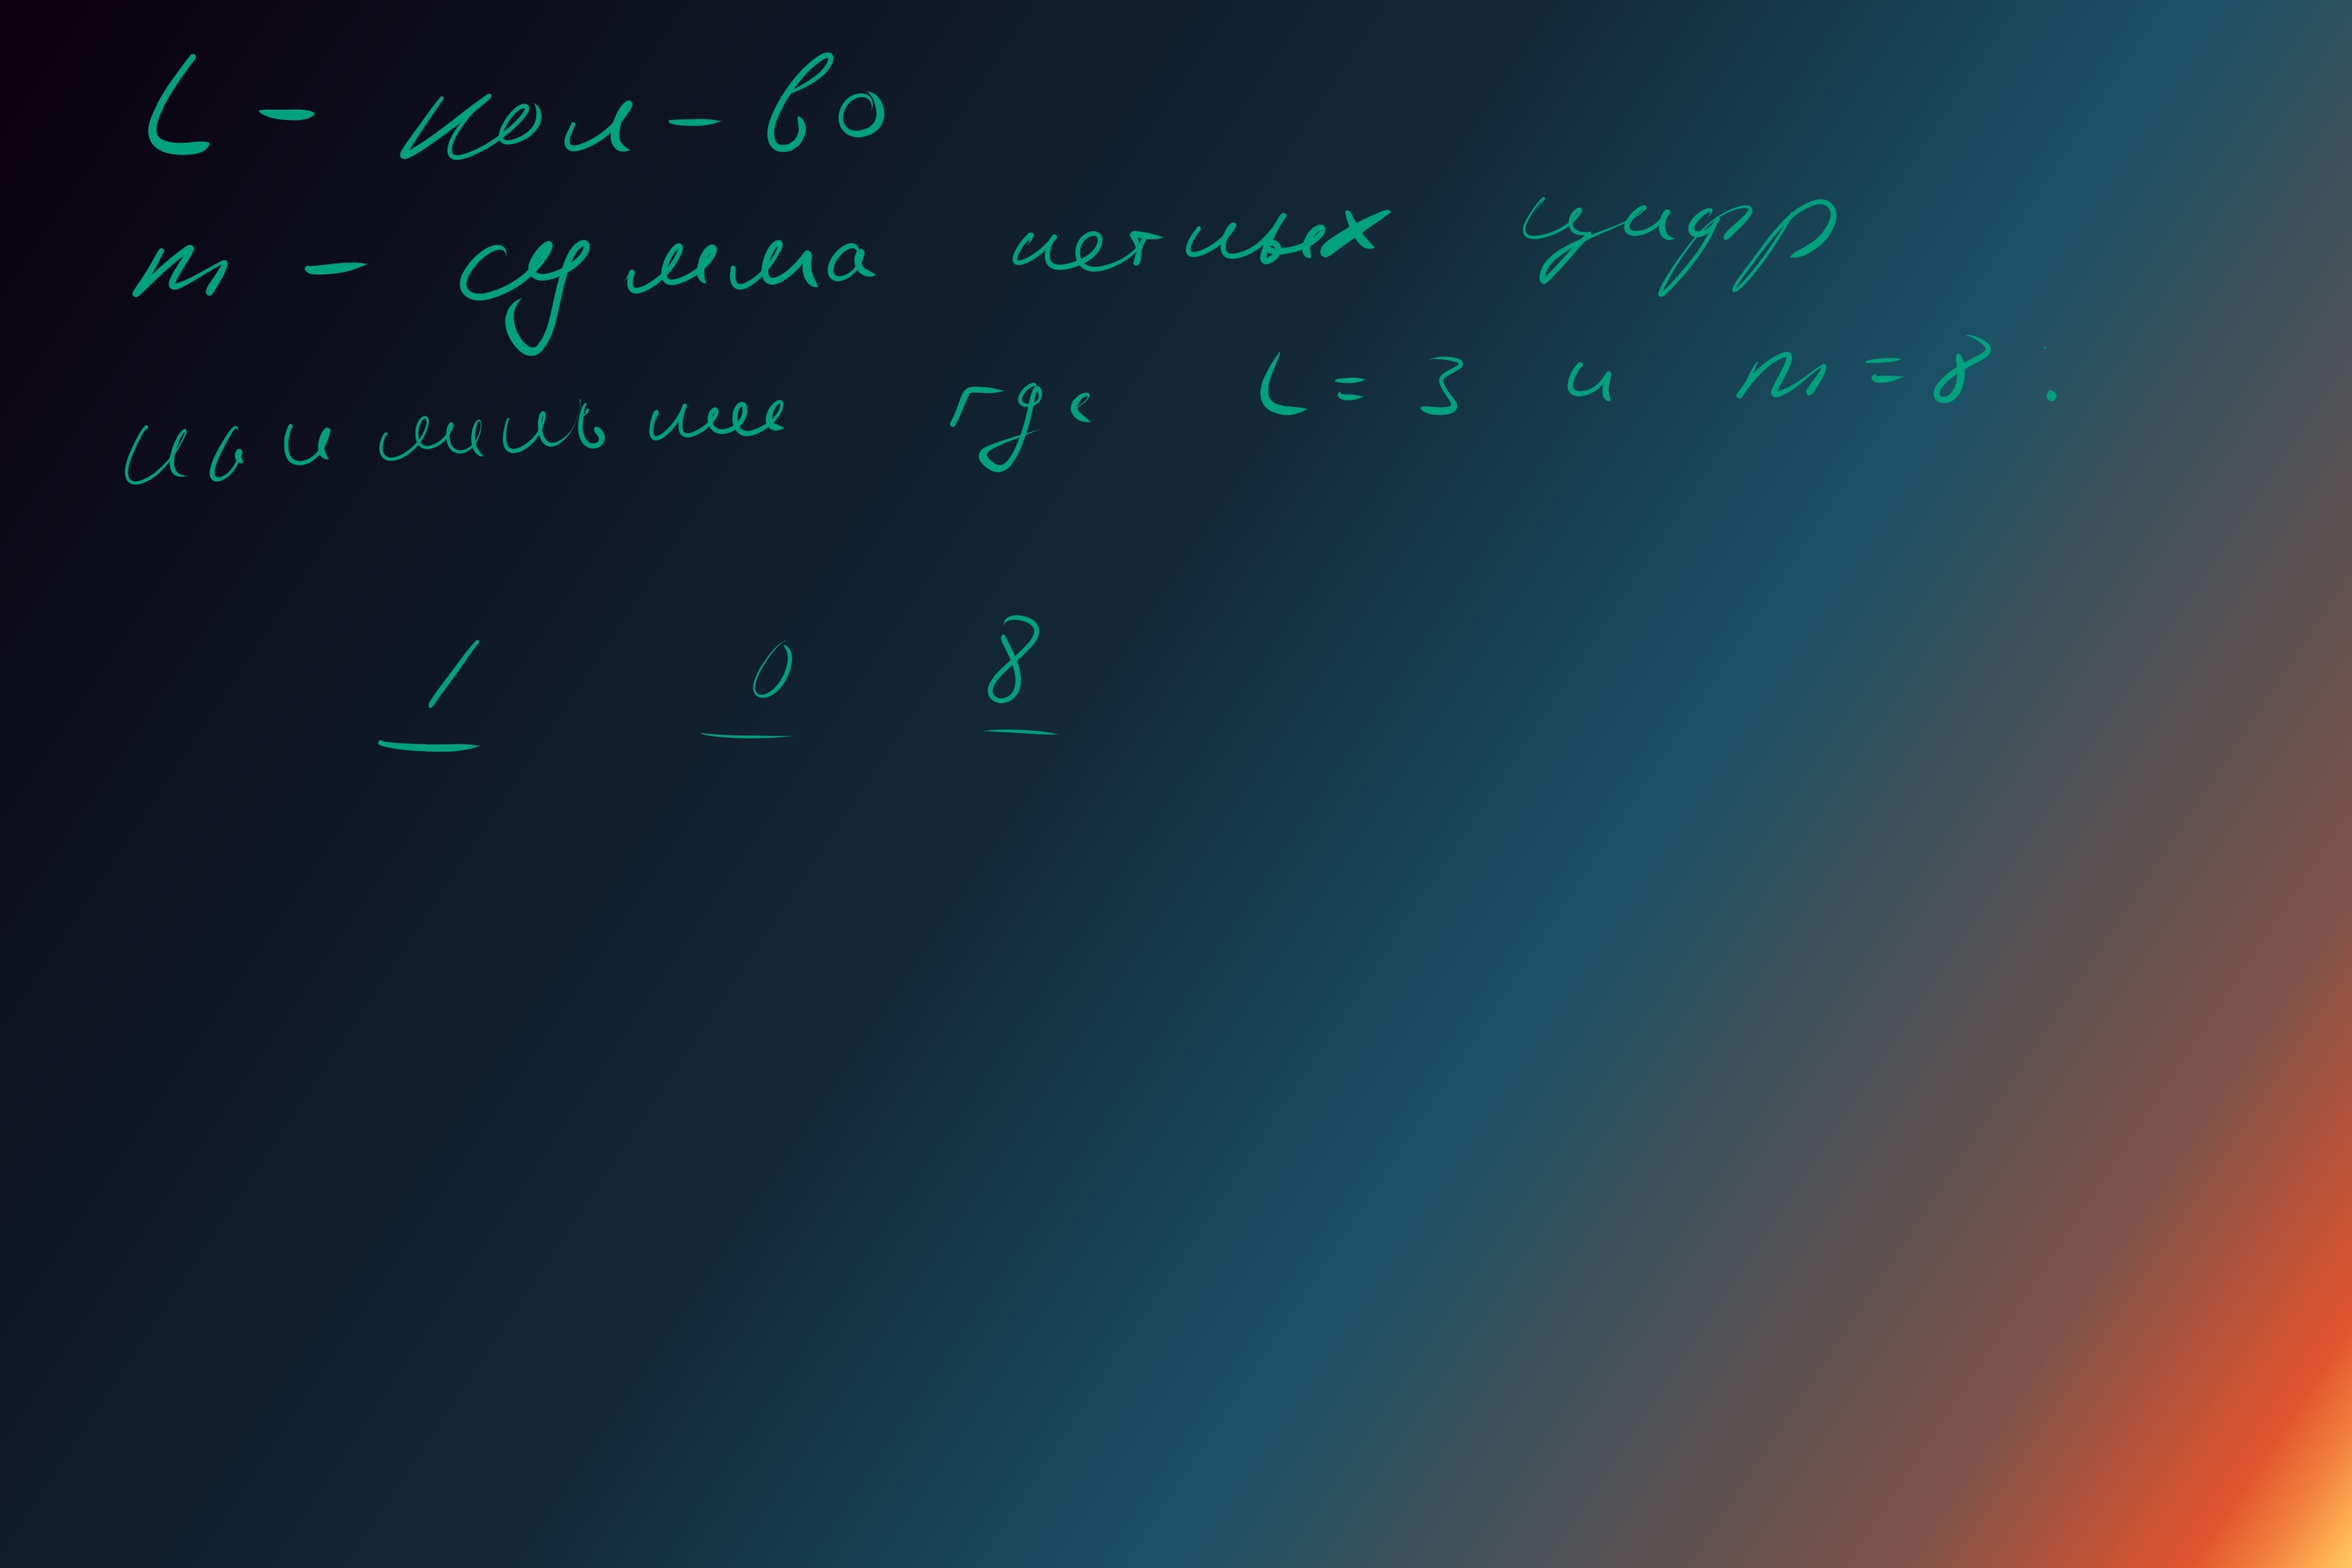 L - кол-во
m - сумма четных цифр
наименьшее где L = 3 и m = 8 :
1 0 8